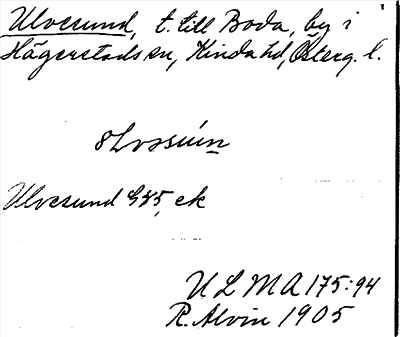 Ulvesund, t. till Boda, by i
Hägerstads sn, Kinda hd, Österg. l.
Ulvesund G 85, ek
ULMA 175:94
R. Alvin 1905